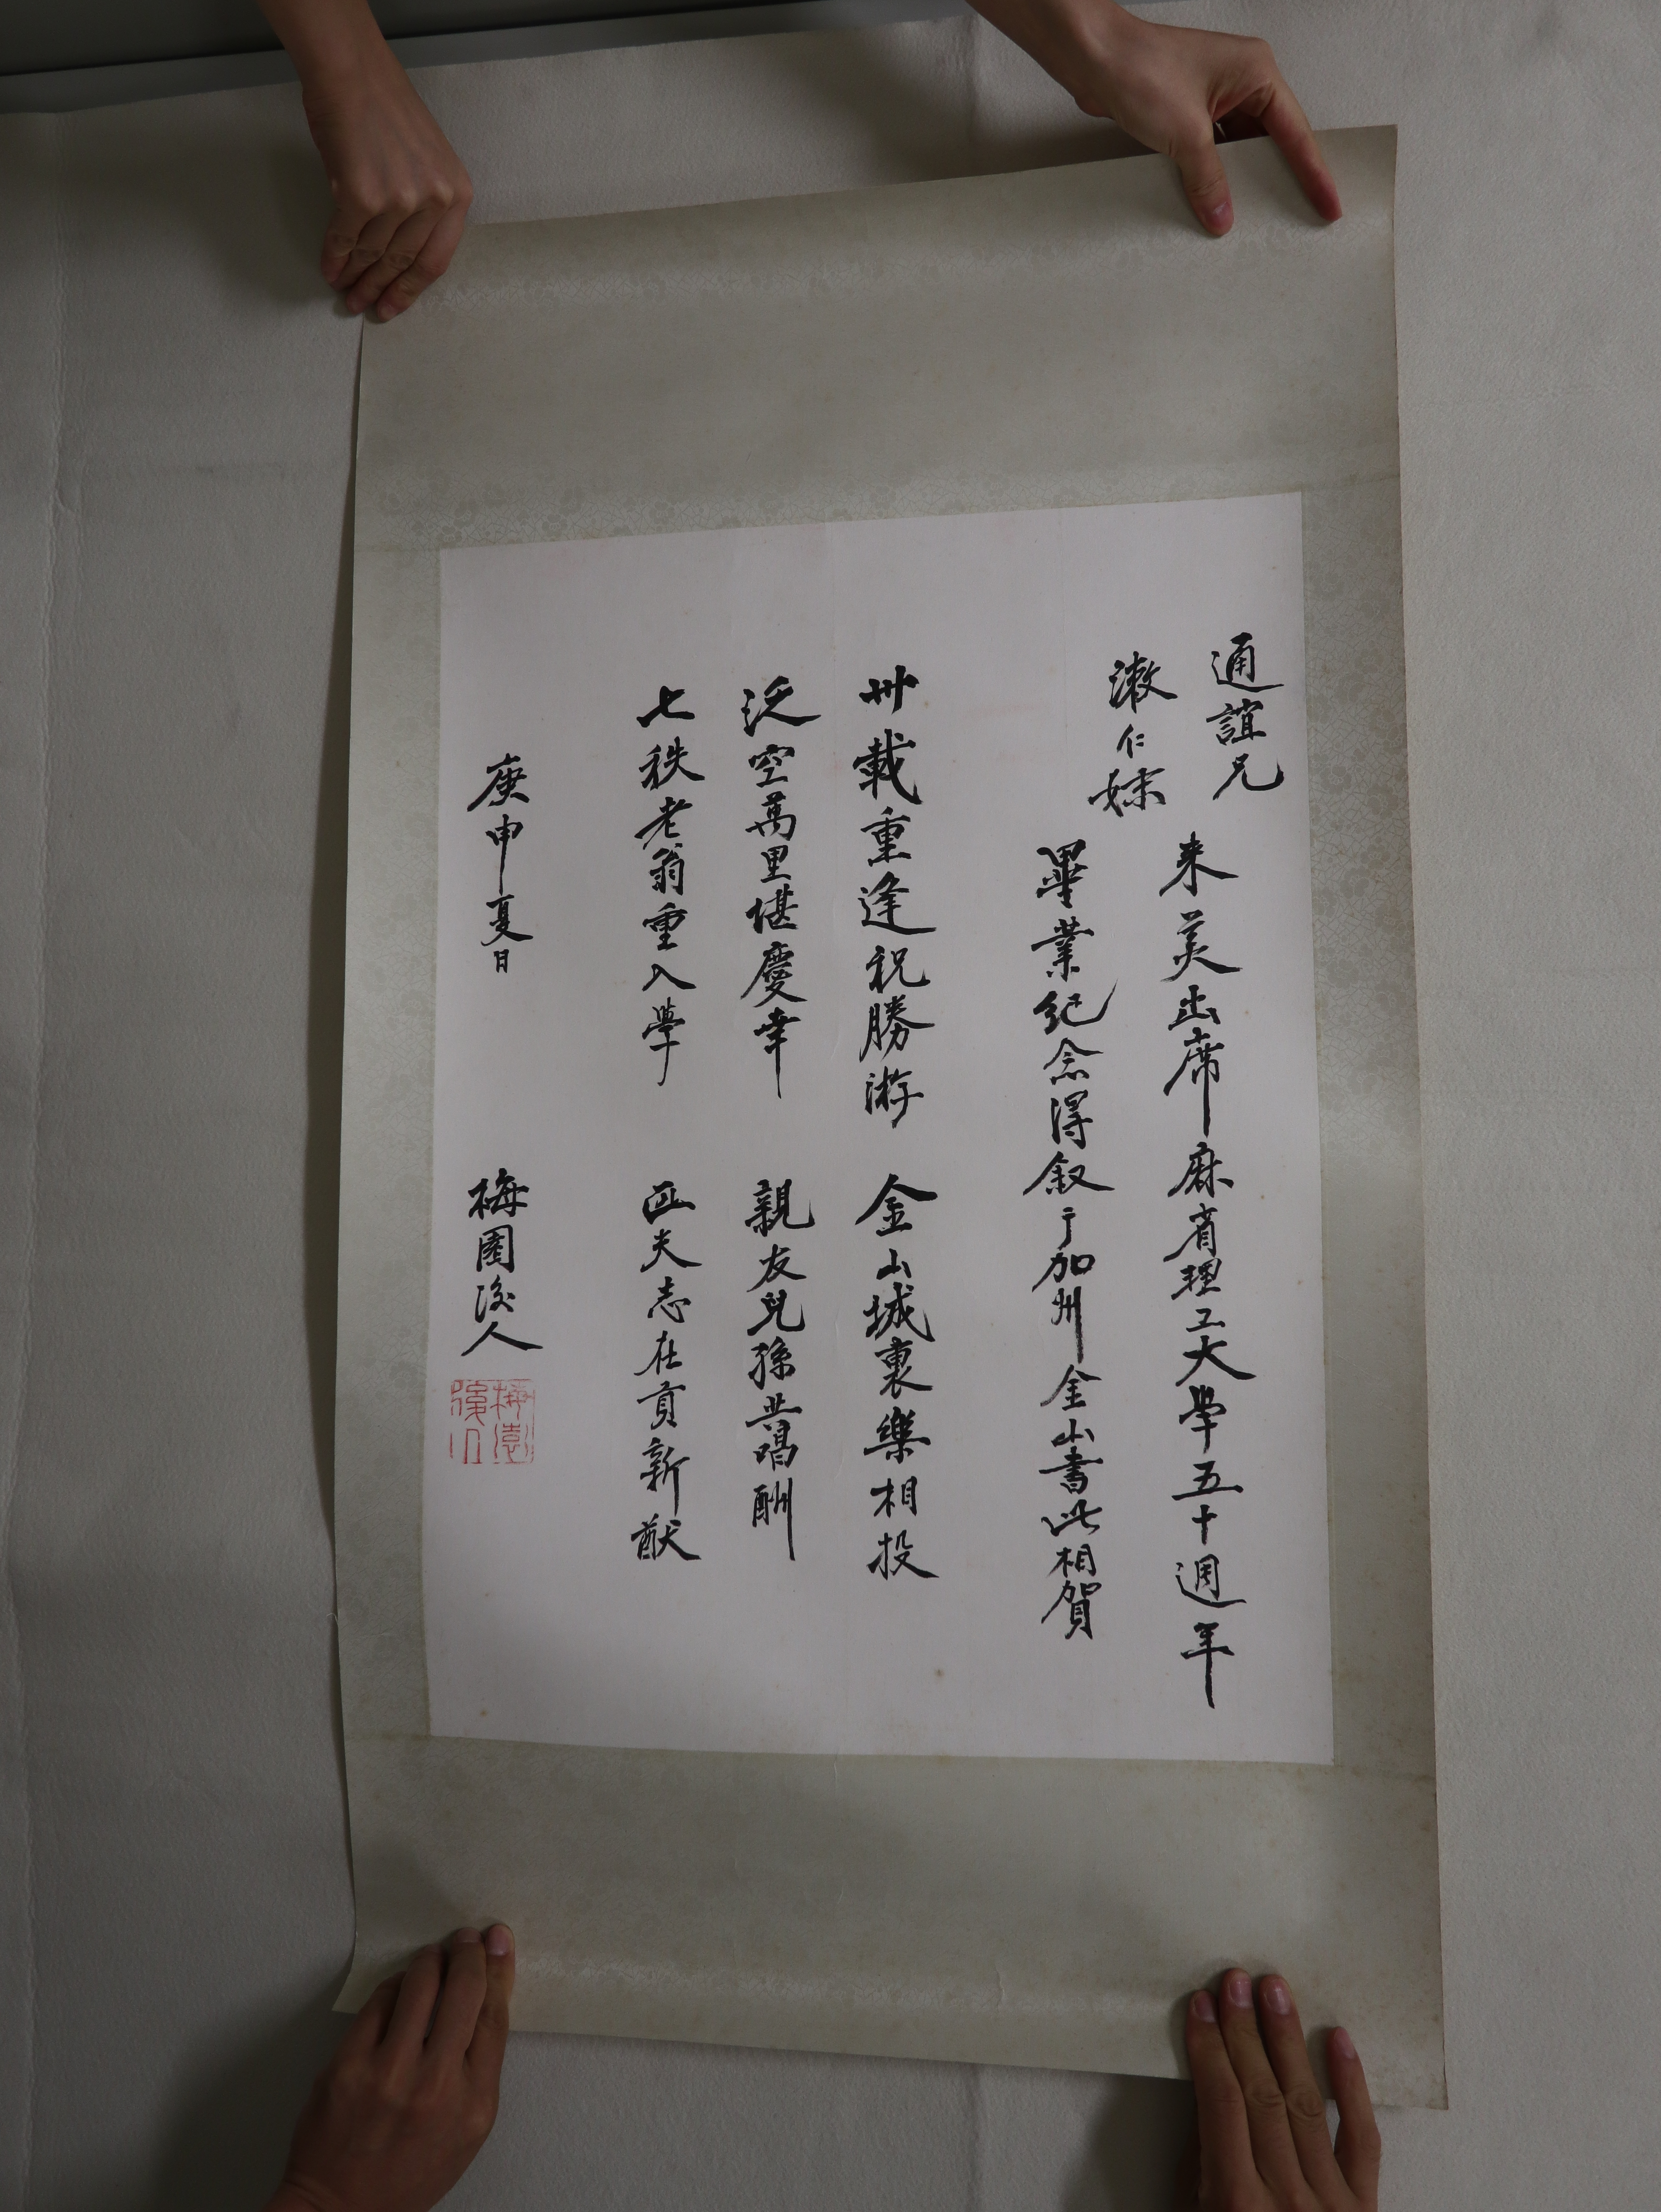 通誼兄
漱仁妹
来美出席麻省理工大學五十週年
畢業紀念得叙于加州金山書此相賀
卅載重逢祝勝游 金山城裏樂相投
泛空萬里堪慶幸 親友兒孫共唱酬
七秩老翁重入學 匹夫志在貢新猷
庚申夏日 梅園後人
梅園後人